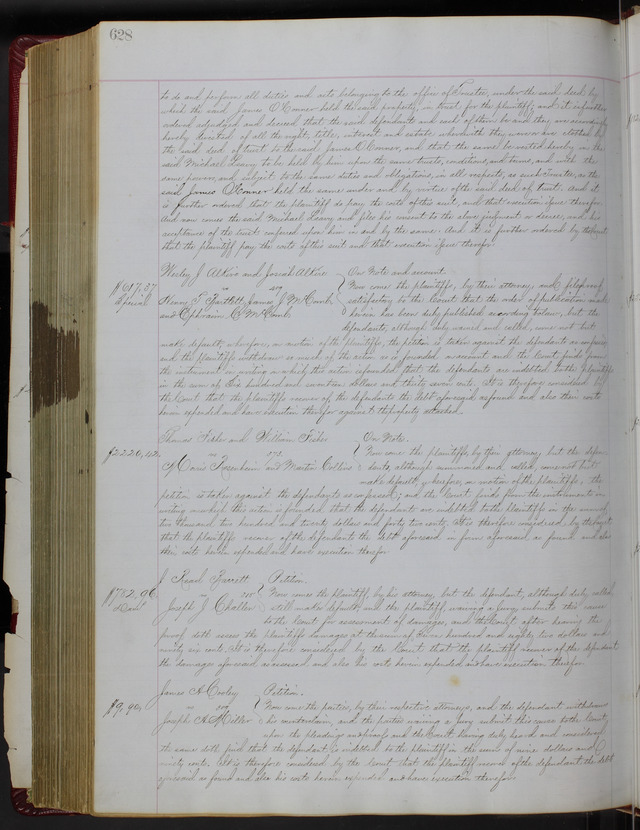 628
to do and perform all duties and acts belonging to the office of Trustee, under the said deed by
which the said James O'Connor held the said property, in trust for the plaintiff; and it is further
ordered adjudged and decreed that the said defendants and each of them be and they are accordingly
hereby divested of all the right, title, interest and estate wherewith they were or are vested by
the said deed of trust to the said James O'Connor, and that the same be vested hereby in the
said Michael Leavy to be held by him upon the same trusts, conditions, and terms, and with the
same powers, and subject to the same duties and obligations, in all respects, as such Trustee, as the
said James O'Connor held the same under and by virtue of the said deed of trust. And it
is further ordered that the plaintiff do pay the costs of this suit, and that execution issue therefor.
And now comes the said Michael Leavy and files his consent to the above judgment or decree, and his
acceptance of the trust conferred upon him in and by the same. And it is further ordered by the Court
that the plaintiff pay the costs of this suit and that execution issue therefor.
Wesley J. Atkins and Josiah Atkins
On Note and account.
$617,37
Special
vs
Now come the plaintiffs, by their attorney, and file proof
Henry T. Bartlett, James J. McComb
satisfactory to the Court that the order of publication made
and Ephraim C. McComb
herein has been duly published according to law, but the
defendants, although duly named and called, come not but
make default; wherefore, on motion of the plaintiffs, the petition is taken against the defendants as confessed;
and the plaintiffs withdraw so much of the action as is founded on account and the Court finds from
the instrument in writing on which this action is founded, that the defendants are indebted to the plaintiffs
in the sum of Six hundred and seventeen dollars and thirty seven cents. It is therefore considered by
the Court that the plaintiffs recover of the defendants the debt aforesaid as found and also their costs
herein expended and have execution therefor against the property attached.
Thomas Fisher and William Fisher
On Note.
$2220,42.
vs
Now come the plaintiffs, by their attorney, but the defen-
Morris Rosenheim and Martin Collins
dants, although summoned and called, come not but
make default; wherefore, on motion of the plaintiffs, the
petition is taken against the defendants as confessed; and the Court finds from the instrument in
writing on which this action is founded, that the defendants are indebted to the plaintiffs in the sum of
two thousand two hundred and twenty dollars and forty two cents. It is therefore considered by the Court
that the plaintiffs recover of the defendants the debt aforesaid in form aforesaid as found and also
their costs herein expended and have execution therefor.
J. Barrett
Petition.
$782,96
Dam.
vs
Now comes the plaintiff, by his attorney, but the defendant, although duly called
Joseph J.
still makes default and the plaintiff, waiving a jury, submits this cause
to the Court for assessment of damages, and the Court after hearing the
proof doth assess the plaintiffs damages at the sum of Seven hundred and eighty two dollars and
ninety six cents. It is therefore considered by the Court that the plaintiff recover of the defendant
the damages aforesaid as assessed and also his costs herein expended and have execution therefor.
James H. Cooley
Petition.
$9,90.
vs
Now come the parties, by their respective attorneys, and the defendant withdraws
Joseph A. Miller
his counterclaim, and the parties waiving a jury submit this cause to the Court
upon the pleadings and proofs and the Court having duly heard and considered
the same doth find that the defendant is indebted to the plaintiff in the sum of nine dollars and
ninety cents. It is therefore considered by the Court that the plaintiff recover of the defendant the debt
aforesaid as found and also his costs herein expended and have execution therefor.